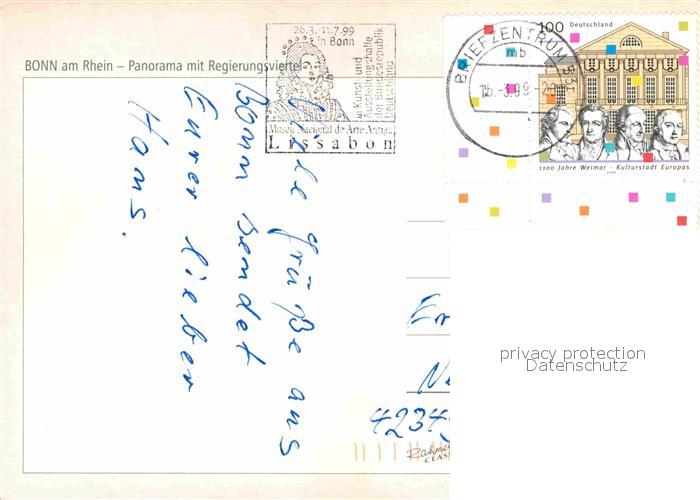 BONN am Rhein – Panorama mit Regierungsviertel
26.3.-11.7.99
in Bonn
Kunst- und
Ausstellungshalle
der Bundesrepublik
Deutschland
Museu Nacional de Arte Antiga
Lissabon
BRIEFZENTRUM 53
mb
100 Deutschland
1100 Jahre Weimar – Kulturstadt Europas
Viele Grüße aus
Bonn sendet
Eurer lieber
Hans.
4234
privacy protection
Datenschutz